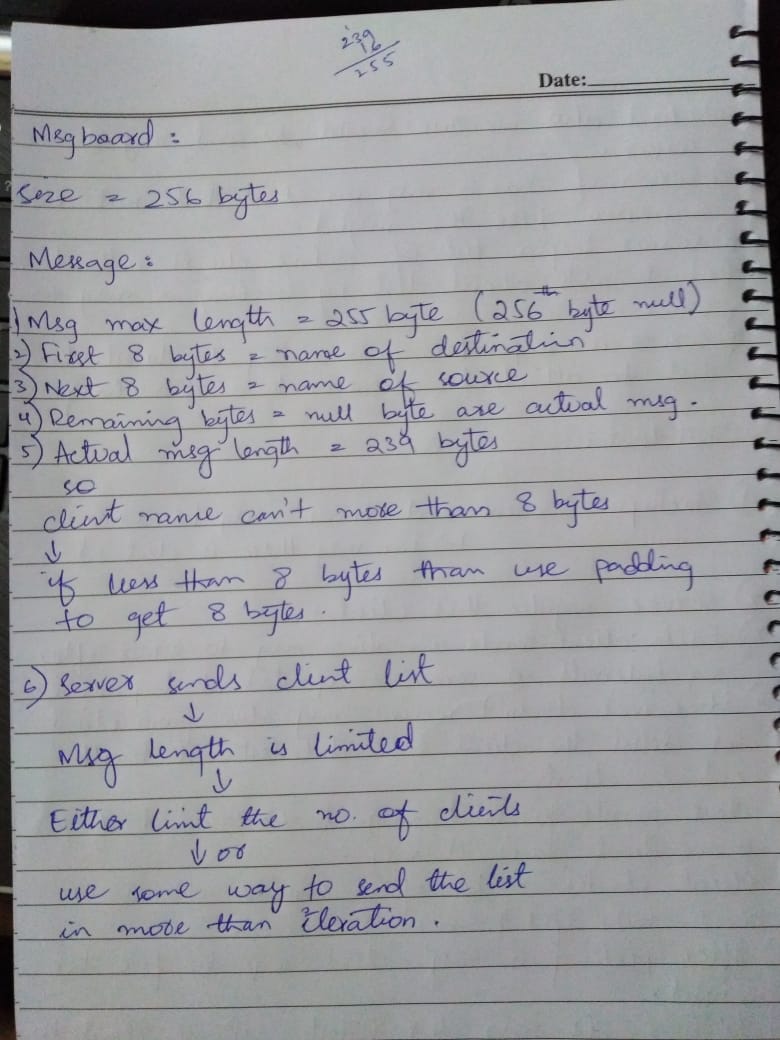 239
16
255
Date:
Msgboard :
Size = 256 bytes
Message :
1) Msg max length = 255 byte (256th byte null)
2) First 8 bytes = name of destination
3) Next 8 bytes = name of source
4) Remaining bytes = null byte are actual msg.
5) Actual msg length = 239 bytes
so
client name can't more than 8 bytes
↓
if less than 8 bytes than use padding
to get 8 bytes.
6) Server sends client list
↓
Msg length is limited
↓
Either limit the no. of clients
↓ or
use some way to send the list
in more than iteration.